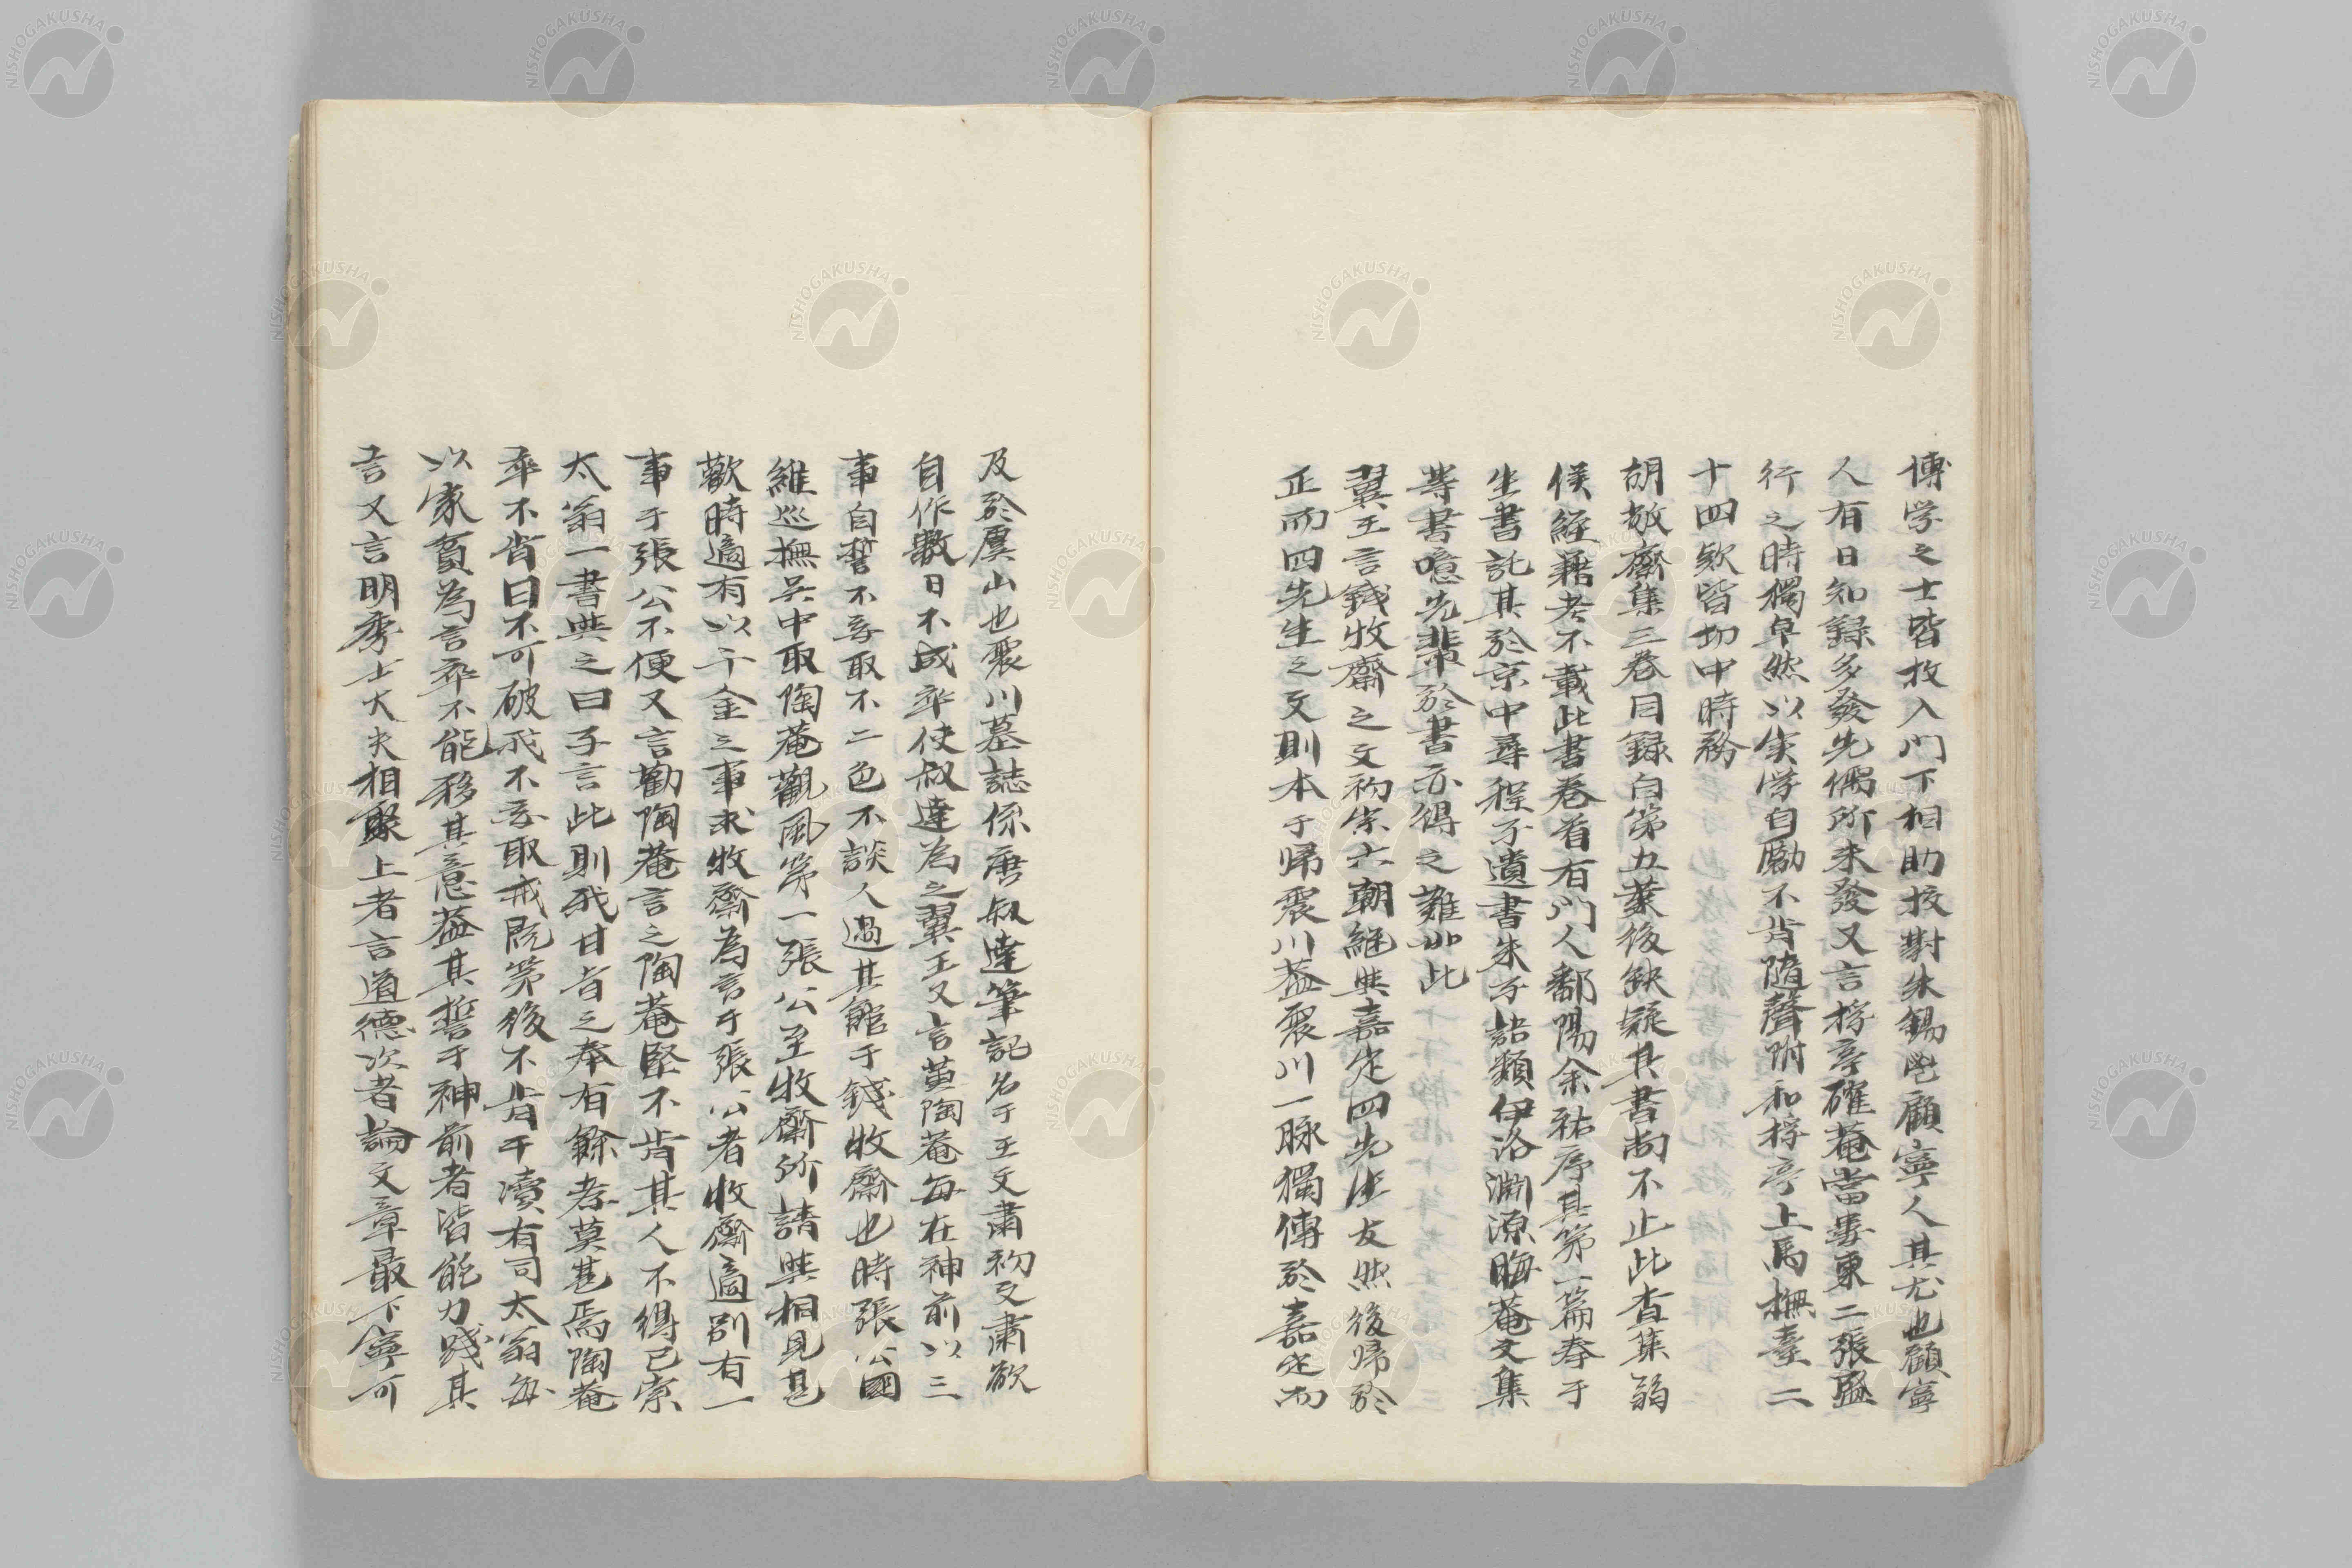 博学之士皆投入門下相助挍對朱錫鬯顧寧人其尤也顧寧
人有日知録多發先儒所未發又言桴亭確菴當婁東二張盛
行之時獨卓然以実学自勵不肯隨聲附和桴亭上馬撫臺二
十四欵皆切中時務
胡敬齋集三卷目録自第五葉後缺疑其書尚不止此查焦弱
侯經籍考不載此書卷首有門人鄱陽余祐序其第一篇奉于
生書託其於京中尋程子遺書朱子語類伊洛淵源晦菴文集
等書噫先輩於書亦得之難如此
翼王言錢牧齋之文初宗六朝継與嘉定四先生友然後歸於
正而四先生之文則本于归震川葢震川一脉獨傳於嘉定而
及於虞山也震川墓誌係唐叔達筆記名于王文肅初文肅欲
自作數日不成卒使叔達為之翼王又言黄陶菴每在神前以三
事自誓不妄取不二色不談人過其館于錢牧齋也時張公國
維巡撫吴中取陶菴觀風第一張公至牧齋所請與相見甚
歡時適有以千金之事求牧齋為言于張公者牧齋適別有一
事于張公不便又言勸陶菴言之陶菴堅不肯其人不得已索
太翁一書與之曰子言此則我甘旨之奉有餘孝莫甚焉陶菴
卒不肯曰不可破我不妄取戒既第後不肯干瀆有司太翁每
以家貧為言卒不能移其意葢其誓于神前者皆能力踐其
言又言明季士大夫相聚上者言道德次者論文章最下寧可